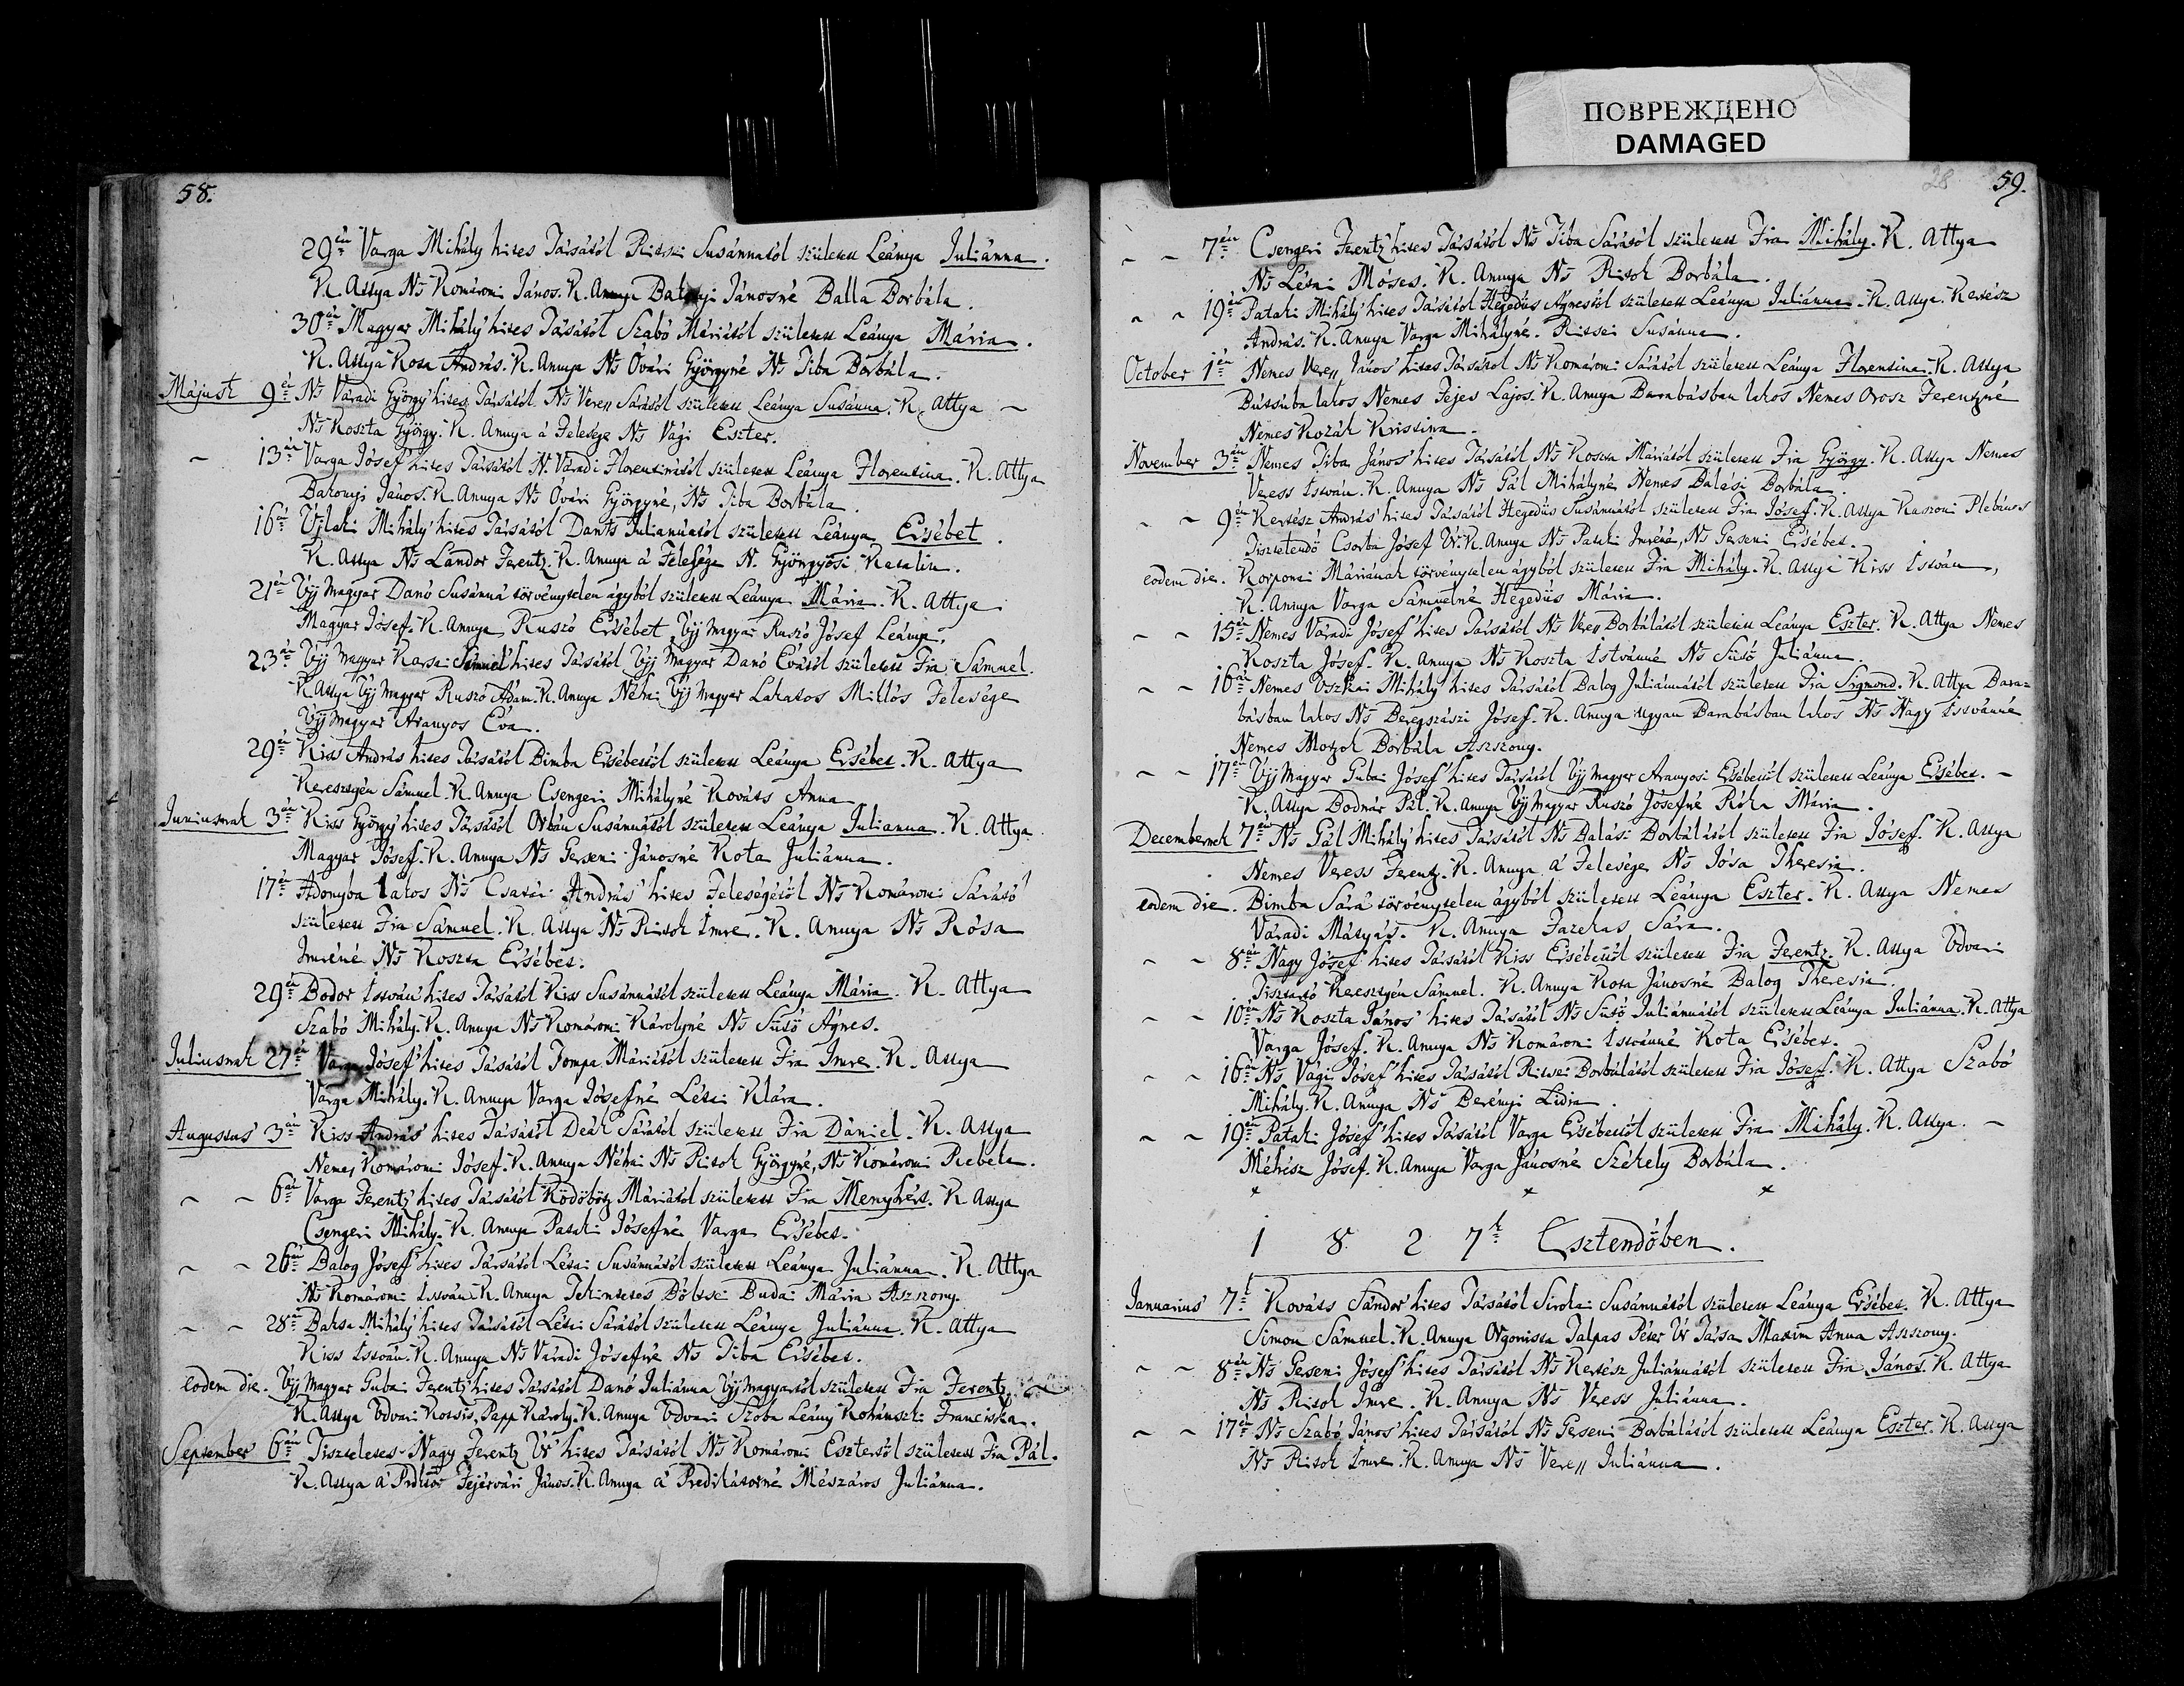 ПОВРЕЖДЕНО
DAMAGED
58.
29én Varga Mihály hites Társától Ritskei Susánnától született Leánya Juliánna.
K. Attya Ns Komáromi János. K. Annya Bakonyi Jánosné Balla Borbála.
30án Magyar Mihály hites Társától Szabó Máriától született Leánya Mária.
K. Attya Kota András. K. Annya Ns Óvári Györgyné Ns Tiba Borbála.
Májust 9én Ns Váradi György hites Társától Ns Veress Sárától született Leánya Susánna. K. Attya
Ns Koszta György. K. Annya á Felesége Ns Vági Eszter.
13án Varga Jósef hites Társától N. Váradi Florentinától született Leánya Florentina. K. Attya
Bakonyi János. K. Annya Ns Óvári Györgyné, Ns Tiba Borbála.
16án Újlaki Mihály hites Társától Dants Juliannától született Leánya Ersébet.
K. Attya Ns Lándor Ferentz. K. Annya á Felesége N. Gyöngyösi Katalin.
21én Újj Magyar Danó Susánná törvénytelen ágyból született Leánya Mária. K. Attya
Magyar Jósef. K. Annya Ruszó Ersébet Újj Magyar Ruszó Jósef Leánya.
23án Újj Magyar Karsai Sámuel hites Társától Újj Magyar Danó Évától született Fia Sámuel.
K. Attya Újj Magyar Ruszó Ádám. K. Annya Néhai Újj Magyar Lakatos Miklós Felesége
Újj Magyar Aranyos Éva.
29én Kiss András hites Társától Bimba Ersébettől született Leánya Ersébet. K. Attya
Keresztyén Sámuel. K. Annya Csengeri Mihályné Kováts Anna
Juniusnak 3án Kiss György hites Társától Orbán Susánnától született Leánya Julianna. K. Attya
Magyar Jósef. K. Annya Ns Gerseni Jánosné Kota Juliánna.
17én Adonyba lakos Ns Csatári András hites Feleségétől Ns Komáromi Sárától
született Fia Sámuel. K. Attya Ns Ritok Imre. K. Annya Ns Rósa
Imréné Ns Koszta Ersébet.
29én Bodor István hites Társától Kiss Susánnától született Leánya Mária. K. Attya
Szabó Mihály. K. Annya Ns Komáromi Károlyné Ns Sütő Ágnes.
Juliusnak 27én Varga Jósef hites Társától Tompa Máriától született Fia Imre. K. Attya
Varga Mihály. K. Annya Varga Jósefné Létai Klára.
Augustus 3án Kiss András hites Társától Deák Sárától született Fia Dániel. K. Attya
Nemes Komáromi Jósef. K. Annya Néhai Ns Ritok Györgyné, Ns Komáromi Rebeka.
6án Varga Ferentz hites Társától Ködöbötz Máriától született Fia Menyhért. K. Attya
Csengeri Mihály. K. Annya Pataki Jósefné Varga Ersébet.
26án Balog Jósef hites Társától Létai Susánnától született Leánya Juliánna. K. Attya
Ns Komáromi István K. Annya Tekintetes Böltsei Budai Mária Aszszony.
28án Baksa Mihály hites Társától Létai Sárától született Leánya Juliánna. K. Attya
Kiss István. K. Annya Ns Váradi Jósefné Ns Tiba Ersébet.
eodem die. Újj Magyar Gubai Ferentz hites Társától Danó Juliánna Újj Magyartól született Fia Ferentz
K. Attya Udvari Kotsis, Papp Károly. K. Annya Udvari Szoba Leány Kohánszki Franciska.
September 6án Tiszteletes Nagy Ferentz Úr hites Társától Ns Komáromi Esztertől született Fia Pál.
K. Attya á Prdktor Fejérvári János. K. Annya á Predikátorné Mészáros Juliánna.
28 59.
7én Csengeri Ferentz hites Társától Ns Tiba Sárától született Fia Mihály. K. Attya
Ns Létai Móses. K. Annya Ns Ritok Borbála.
19én Pataki Mihály hites Társától Hegedüs Ágnestől született Leánya Juliánna. K. Attya Kertész
András. K. Annya Varga Mihályné. Ritskei Susánna.
October 1én Nemes Veress János hites Társától Ns Komáromi Sárától született Leánya Florentina. K. Attya
Bútsúba lakos Nemes Fejes Lajos. K. Annya Barabásban lakos Nemes Orosz Ferentzné
Nemes Kozák Kristina.
November 3án Nemes Tiba János hites Társától Ns Koszta Máriától született Fia György. K. Attya Nemes
Veress István. K. Annya Ns Gál Mihályné Nemes Balási Borbála.
9én Kertész András hites Társától Hegedüs Susánnától született Fia Jósef. K. Attya Kaszoni Plebános
Tisztelendő Csorba Jósef Úr. K. Annya Ns Pataki Imréné, Ns Gerseni Ersébet.
eodem die. Korponai Máriának törvénytelen ágyból született Fia Mihály. K. Attya Kiss István,
K. Annya Varga Sámuelné Hegedüs Mária.
15én Nemes Váradi Jósef hites Társától Ns Veress Borbálától született Leánya Eszter. K. Attya Nemes
Koszta Jósef. K. Annya Ns Koszta Istvánné Ns Sütő Juliánna.
16án Nemes Uszkai Mihály hites Társától Balog Juliánnától született Fia Sigmond. K. Attya Bara=
básban lakos Ns Beregszászi Jósef. K. Annya ugyan Barabásban lakos Ns Nagy Istvánné
Nemes Motzok Borbála Aszszony.
17én Újj Magyar Gubai Jósef hites Társától Újj Magyar Aranyosi Ersébettől született Leánya Ersébet.
K. Attya Bodnár Pál. K. Annya Újj Magyar Ruszó Jósefné Róka Mária.
Decembernek 7én Ns Gál Mihály hites Társától Ns Balási Borbálától született Fia Jósef. K. Attya
Nemes Veress Ferentz. K. Annya á Felesége Ns Jósa Theresia.
eodem die. Bimba Sárá törvénytelen ágyból született Leánya Eszter. K. Attya Nemes
Váradi Mátyás. K. Annya Fazekas Sára.
8án Nagy Jósef hites Társától Kiss Ersébettől született Fia Ferentz. K. Attya Udvari
Tisztartó Keresztyén Sámuel. K. Annya Kota Jánosné Balog Theresia.
10én Ns Koszta János hites Társától Ns Sütő Juliánnától született Leánya Juliánna. K. Attya
Varga Jósef. K. Annya Ns Komáromi Istvánné Kota Ersébet.
16án Ns Vági Jósef hites Társától Ritskei Borbálától született Fia Jósef. K. Attya Szabó
Mihály. K. Annya Ns Berenyi Lidia.
19én Pataki Jósef hites Társától Varga Ersébettől született Fia Mihály. K. Attya
Méhész Jósef. K. Annya Varga Jánosné Székely Borbála.
1 8 2 7k Esztendőben.
Januarius 7k Kováts Sándor hites Társától Sirokai Susánnától született Leánya Ersébet. K. Attya
Simon Sámuel. K. Annya Orgonista Talpas Péter Úr Társa Maxim Anna Aszszony.
8án Ns Gerseni Jósef hites Társától Ns Kertész Juliánnától született Fia János. K. Attya
Ns Ritok Imre. K. Annya Ns Veress Juliánna.
17én Ns Szabó János hites Társától Ns Gerseni Borbálától született Leánya Eszter. K. Attya
Ns Ritok Imre. K. Annya Ns Veress Juliánna.